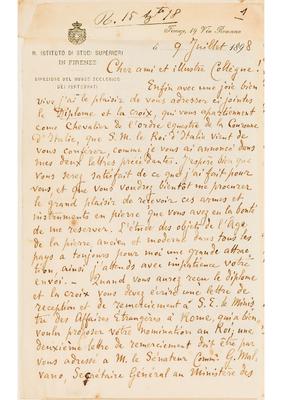 R. 15 7bre 98
1
R. ISTITUTO DI STUDI SUPERIORI
IN FIRENZE
DIREZIONE DEL MUSEO ZOOLOGICO
DEI VERTEBRATI
Firenze, 19 Via Romana
9 Juillet 1898
Cher ami et illustre Collègue!
Enfin avec une joie bien
vive j'ai le plaisir de vous adresser ci jointes
le Diplome et la croix, qui vous appartiennent
come Chevalier de l'ordre equestre de la Couronne
d'Italie, que S. M. le Roi d'Italie vient de
vous conferer, comme je vous ai annoncé dans
mes deux lettres précédantes. J'espère bien que
vous serez satisfait de ce que j'ai fait pour
vous et que vous voudrez bientôt me procurer
le grand plaisir de recevoir ces armes et
instruments en pierre que vous avez eu la bonté
de me reserver. L'étude des objets de l'Age
de la pierre ancien et moderne dans tous les
pays a toujours pour moi une grande attrac-
tion, ainsi j'attends avec impatience votre
envoi. — Quand vous aurez reçu le diplome
et la croix vous devez écrire une lettre de
reception et de remerciement à S. E. le Minis-
tre des Affaires Etrangères à Rome, qui a bien
voulu proposer votre nomination au Roi; une
deuxième lettre de remerciement doit être par
vous adressée à M. le Sénateur Comm. G. Mal-
vano, Secrétaire Général au Ministère des